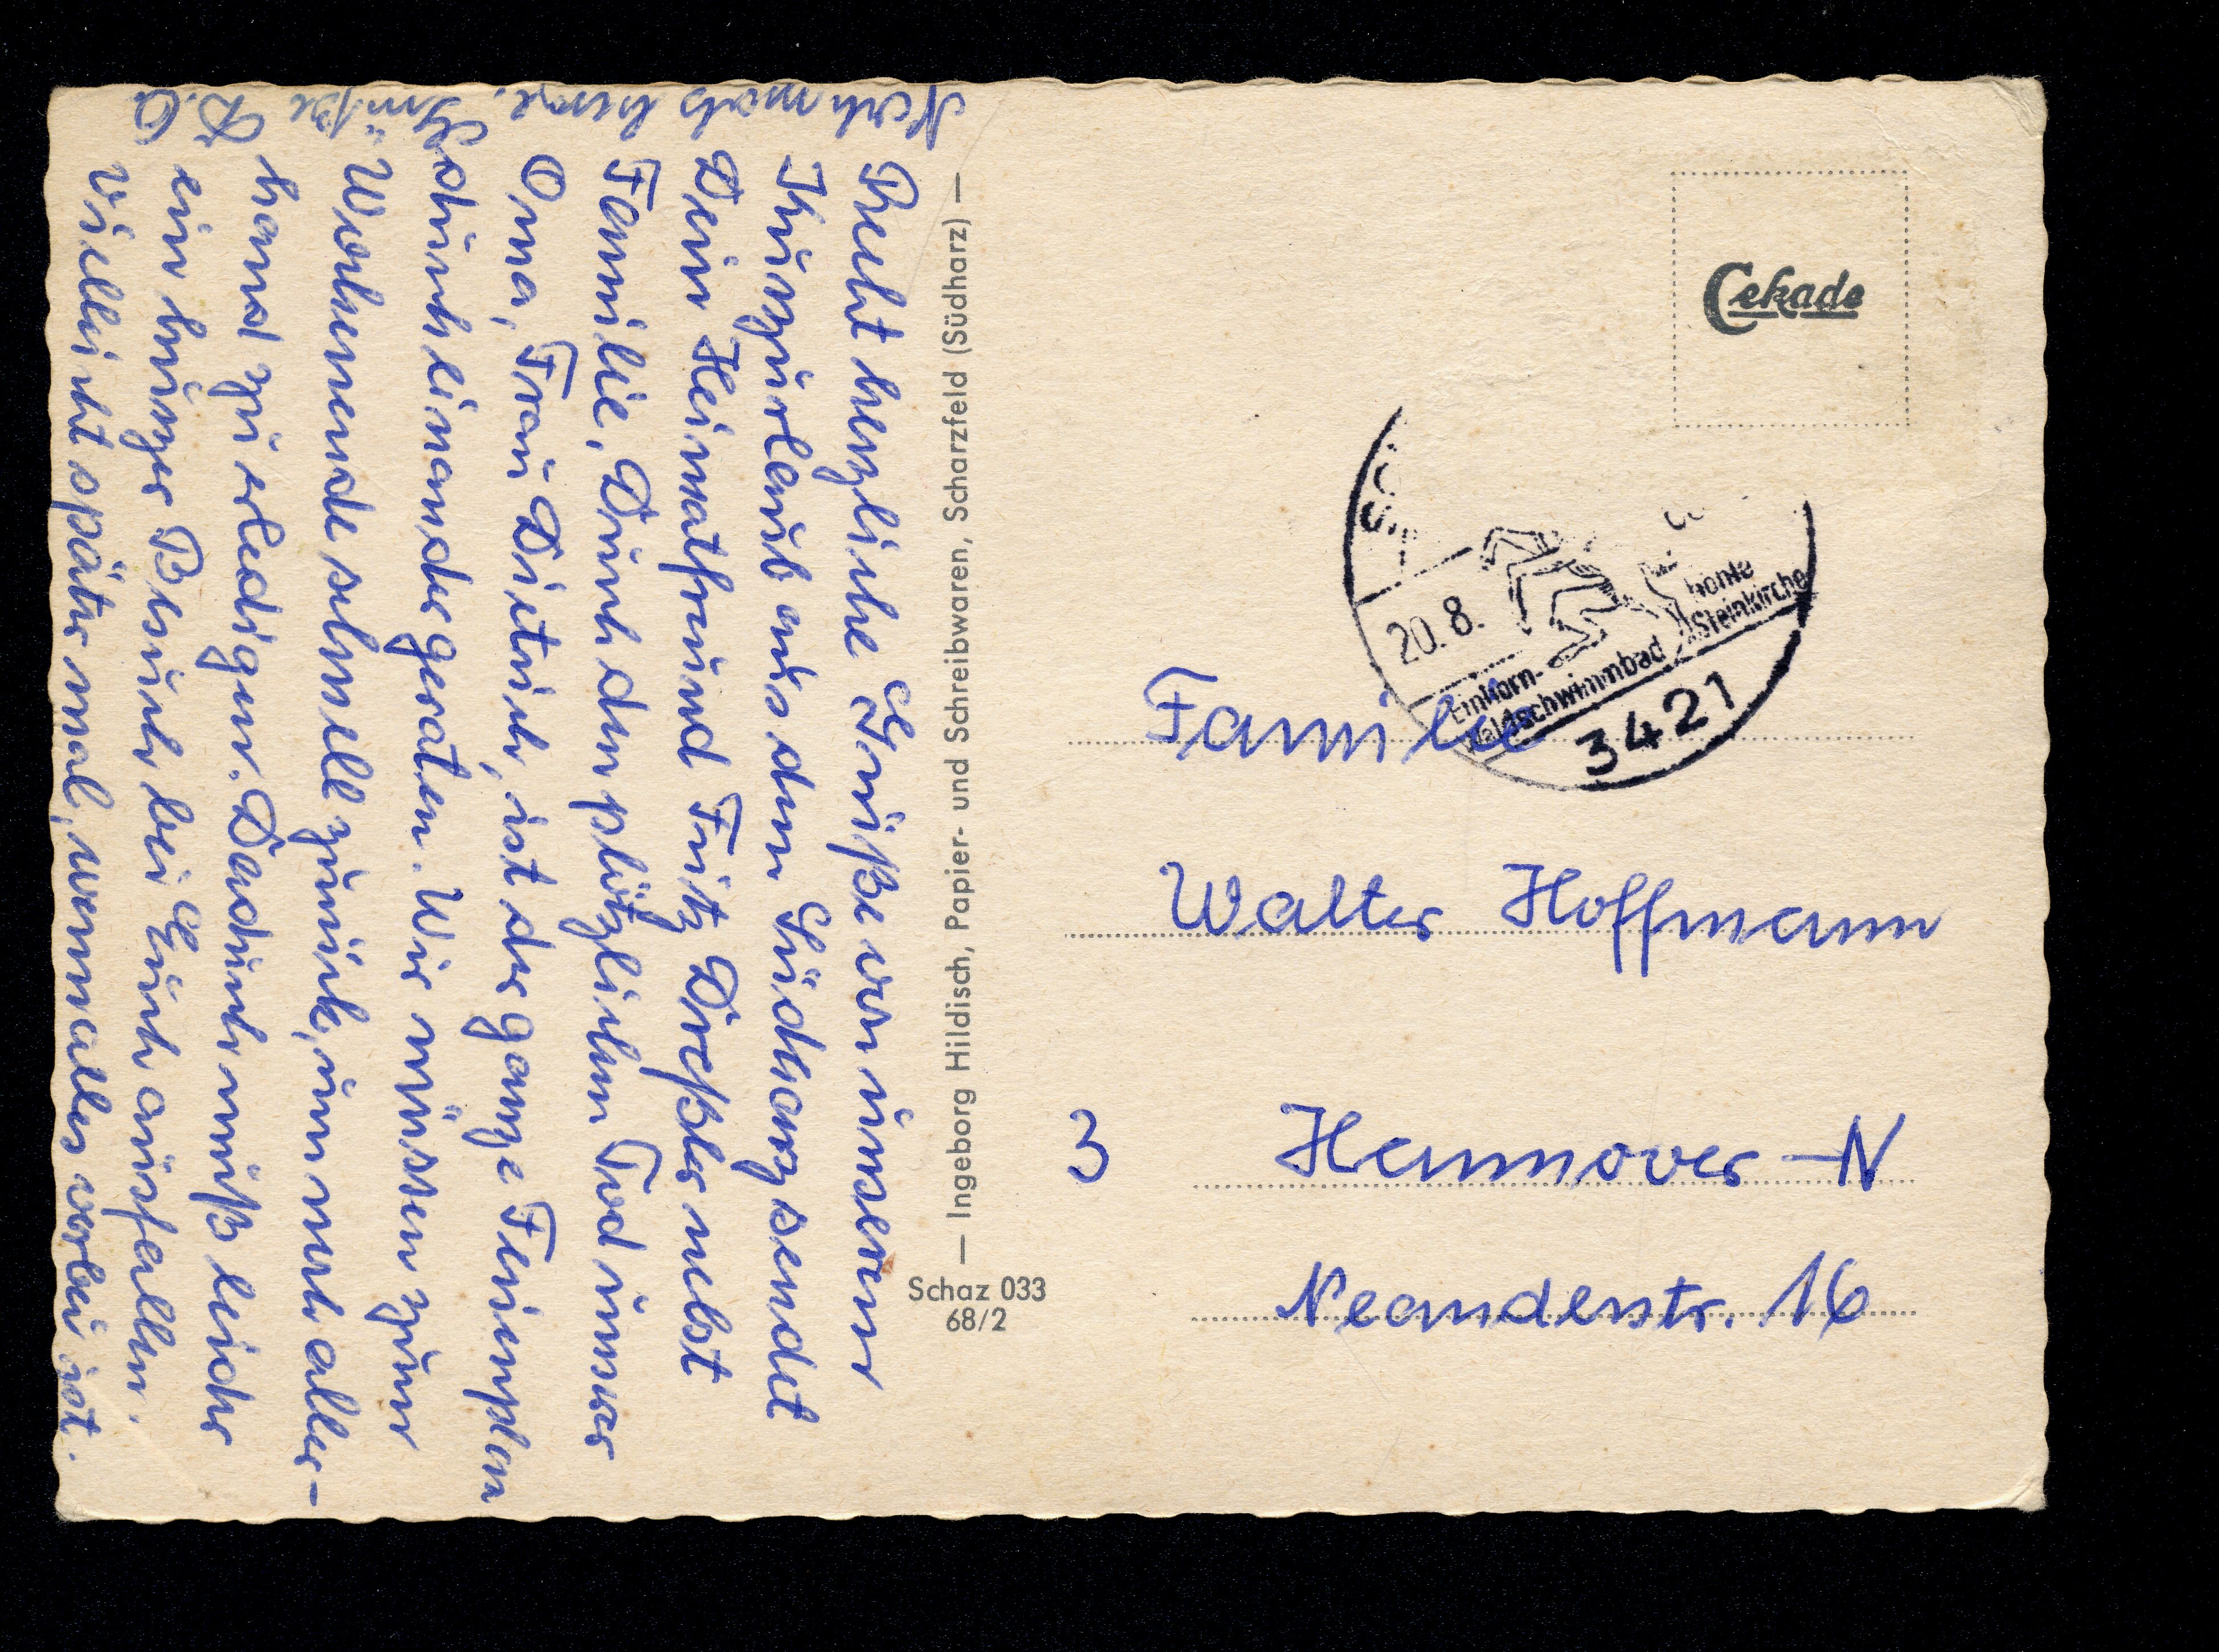 Recht herzliche Grüße von unserem
Kurzurlaub aus dem Südharz sendet
Dein Heimatfreund Fritz Dreßler nebst
Familie. Durch den plötzlichen Tod unserer
Oma, Frau Dietrich, ist der ganze Ferienplan
durcheinander geraten. Wir müssen zum
Wochenende schnell zurück, um noch aller-
hand zu erledigen. Dadurch muß leider
ein kurzer Besuch bei Euch ausfallen.
Vielleicht später mal, wenn alles vorbei ist.
Nochmals herzl.
Grüße
D.O.
— Ingeborg Hildisch, Papier- und Schreibwaren, Scharzfeld (Südharz) —
Schaz 033
68/2
Cekade
20.8.
Einhorn-
Steinkirche
Waldschwimmbad
3421
Familie
Walter Hoffmann
3 Hannover-N
Neanderstr. 16